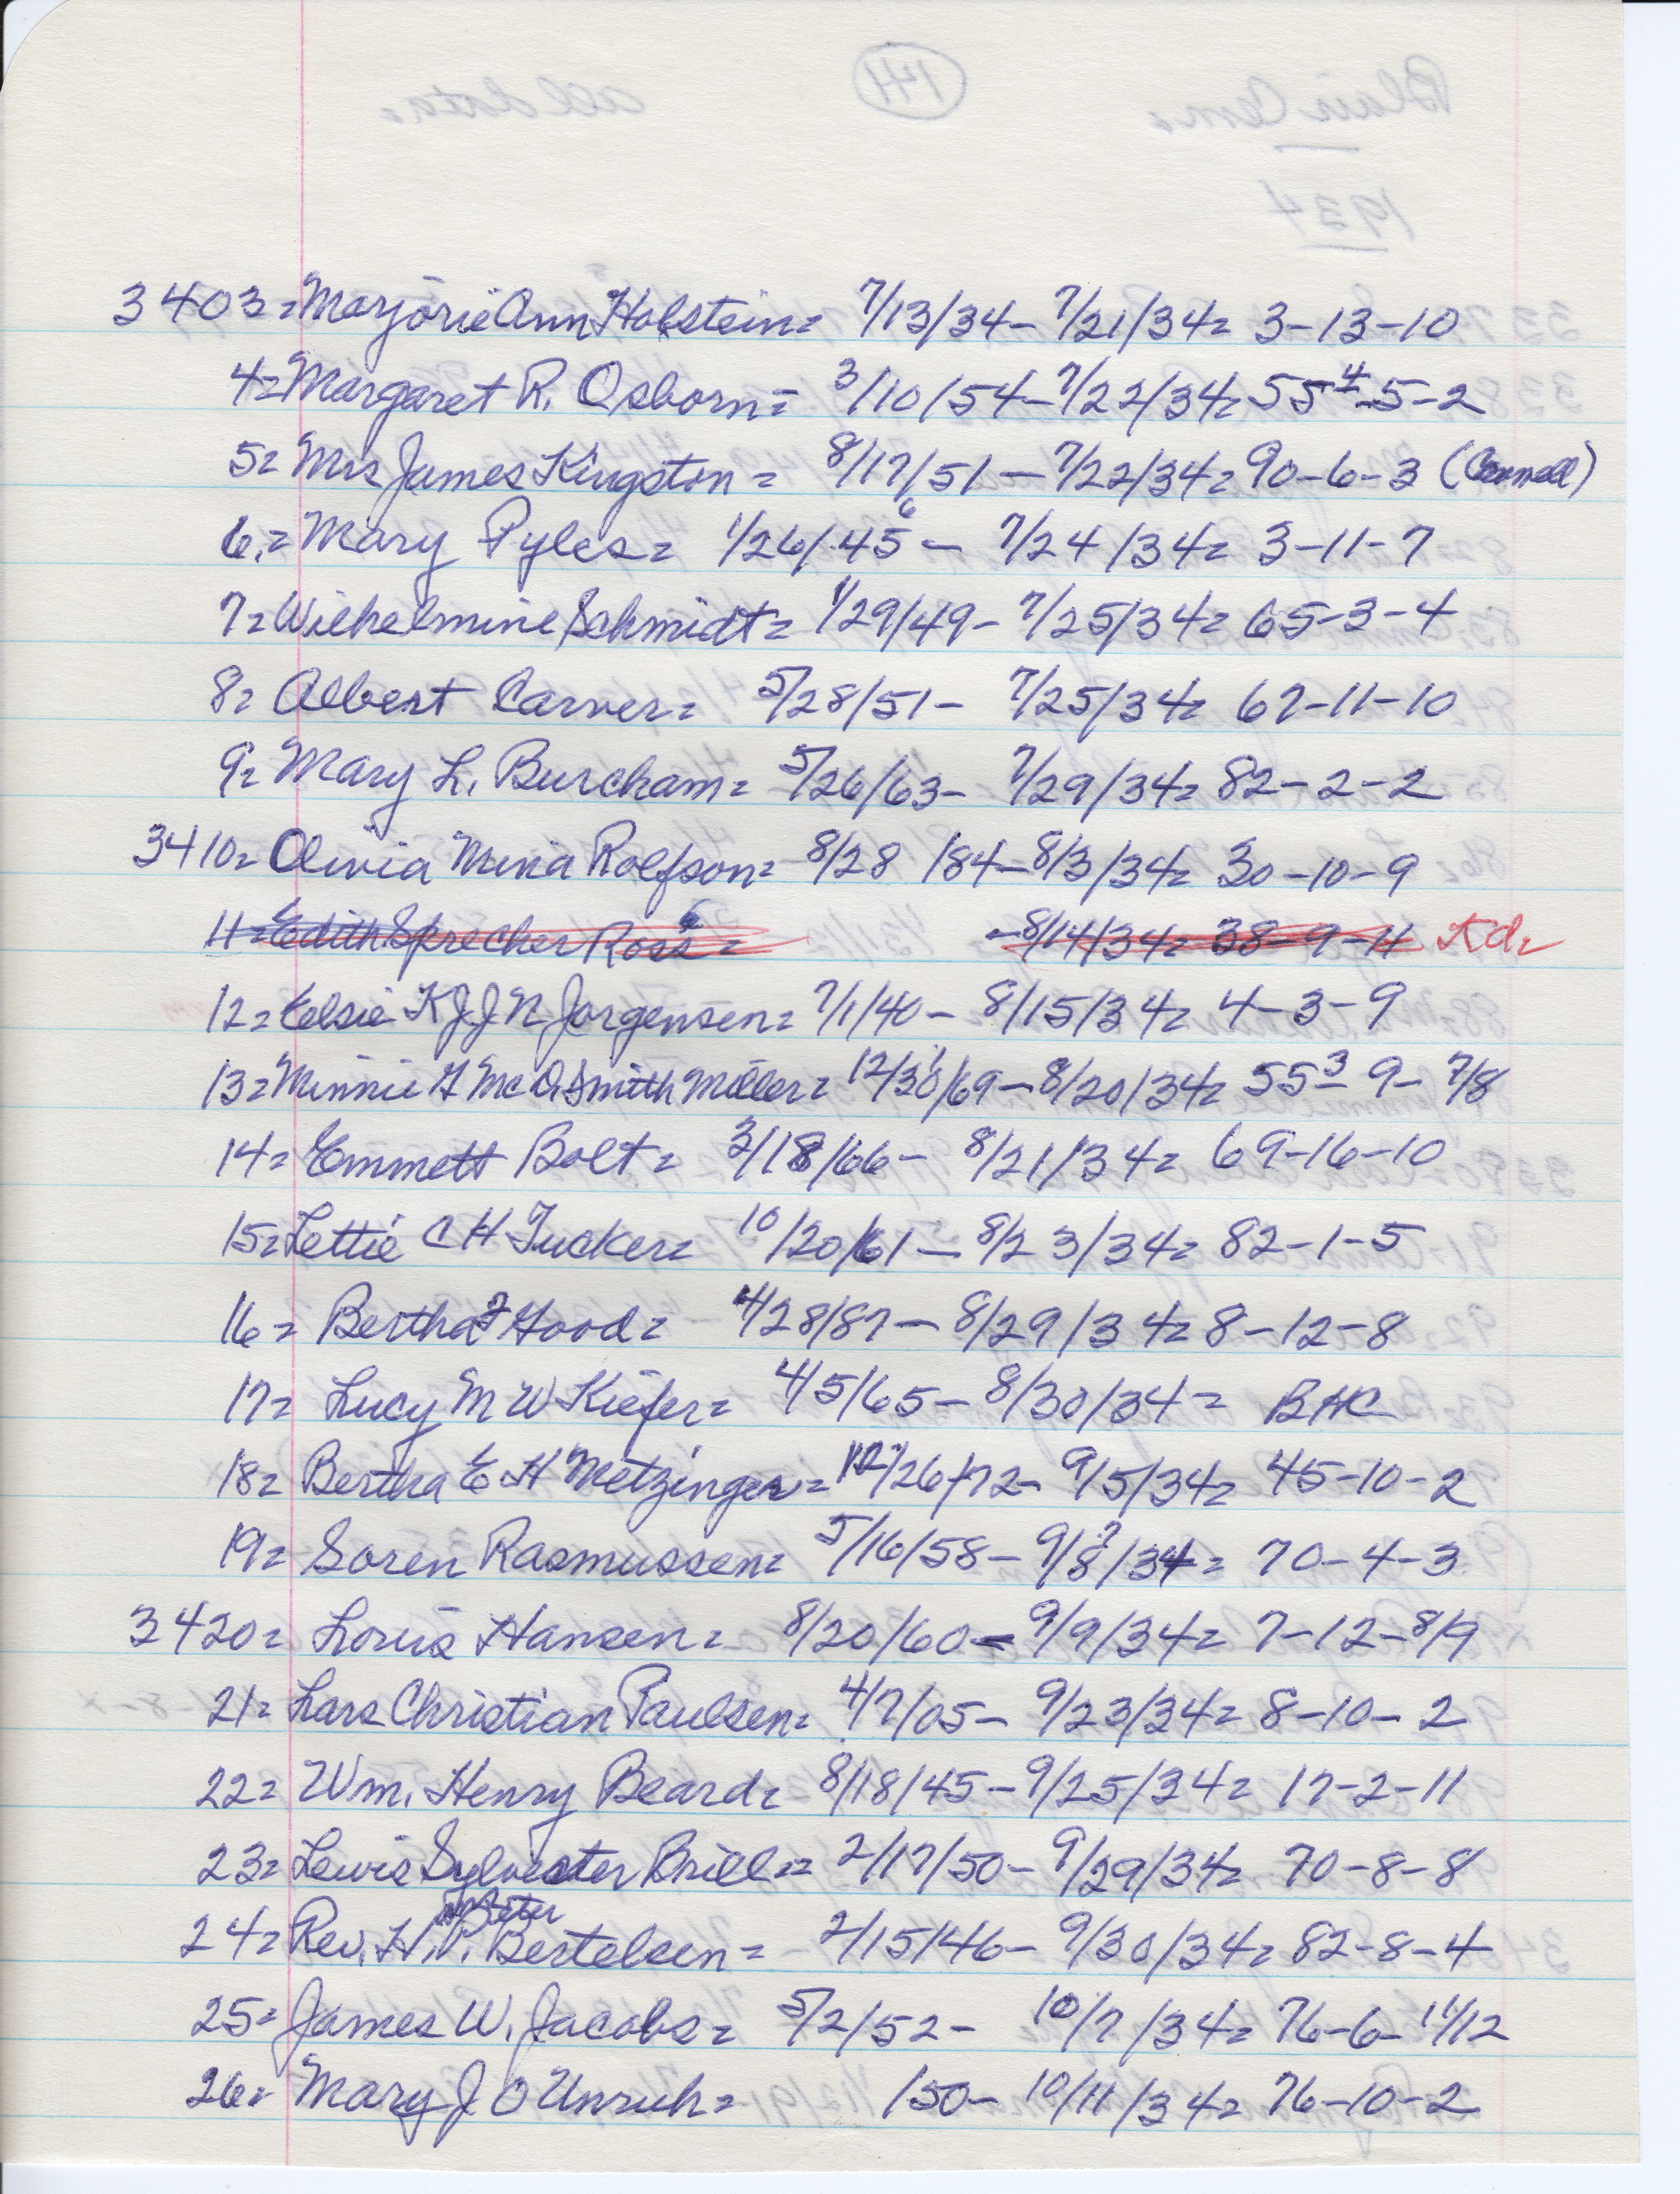 3403= Marjorie Ann Holstein= 7/13/34- 7/21/34= 3-13-10
4= Margaret R. Osborn= 3/10/54-7/22/34= 55 4-5-2
5= Mrs James Kingston= 8/17/51-7/22/34= 90-6-3 (Connell)
6.= Mary Pyles= 1/26/45 6 - 7/24/34= 3-11-7
7= Wilhelmine Schmidt= 1/29/49- 7/25/34= 65-3-4
8= Albert Carver= 5/28/51- 7/25/34= 67-11-10
9= Mary L. Burcham= 5/26/63- 7/29/34= 82-2-2
3410= Olivia Minia Rolfson= 8/28/84-8/3/34= 30-10-9
11= Edith Sprecher Ross= -8/14/34= 38-9-11 Kd=
12= Elsie K J J N Jorgensen= 7/1/40- 8/15/34= 4-3-9
13= Minnie F Mc D. Smith Miller= 12/30/69-8/20/34= 55 3- 9- 7/8
14= Emmett Bolt= 3/18/66- 8/21/34= 69-16-10
15= Lettie C H Tucker= 10/20/61-8/23/34= 82-1-5
16= Bertha F Hood= 4/28/87-8/29/34= 8-12-8
17= Lucy M W Kiefer= 4/5/65-8/30/34= BHC
18= Bertha E H Metzinger= 12/26/72- 9/5/34= 45-10-2
19= Soren Rasmussen= 5/16/58-9/8?/34= 70-4-3
3420= Louis Hansen= 8/20/60-9/9/34= 7-12-8/9
21= Lars Christian Paulsen= 4/7/05- 9/23/34= 8-10-2
22= Wm. Henry Beard= 8/18/45-9/25/34= 17-2-11
23= Lewis Sylvester Brill= 2/17/50-9/29/34= 70-8-8
24= Rev. H. P. Peter Bertelsen= 2/15/46- 9/30/34= 82-8-4
25= James W. Jacobs= 5/2/52- 10/7/34= 76-6-11/12
26= Mary J O Unruh= /50- 10/11/34= 76-10-2